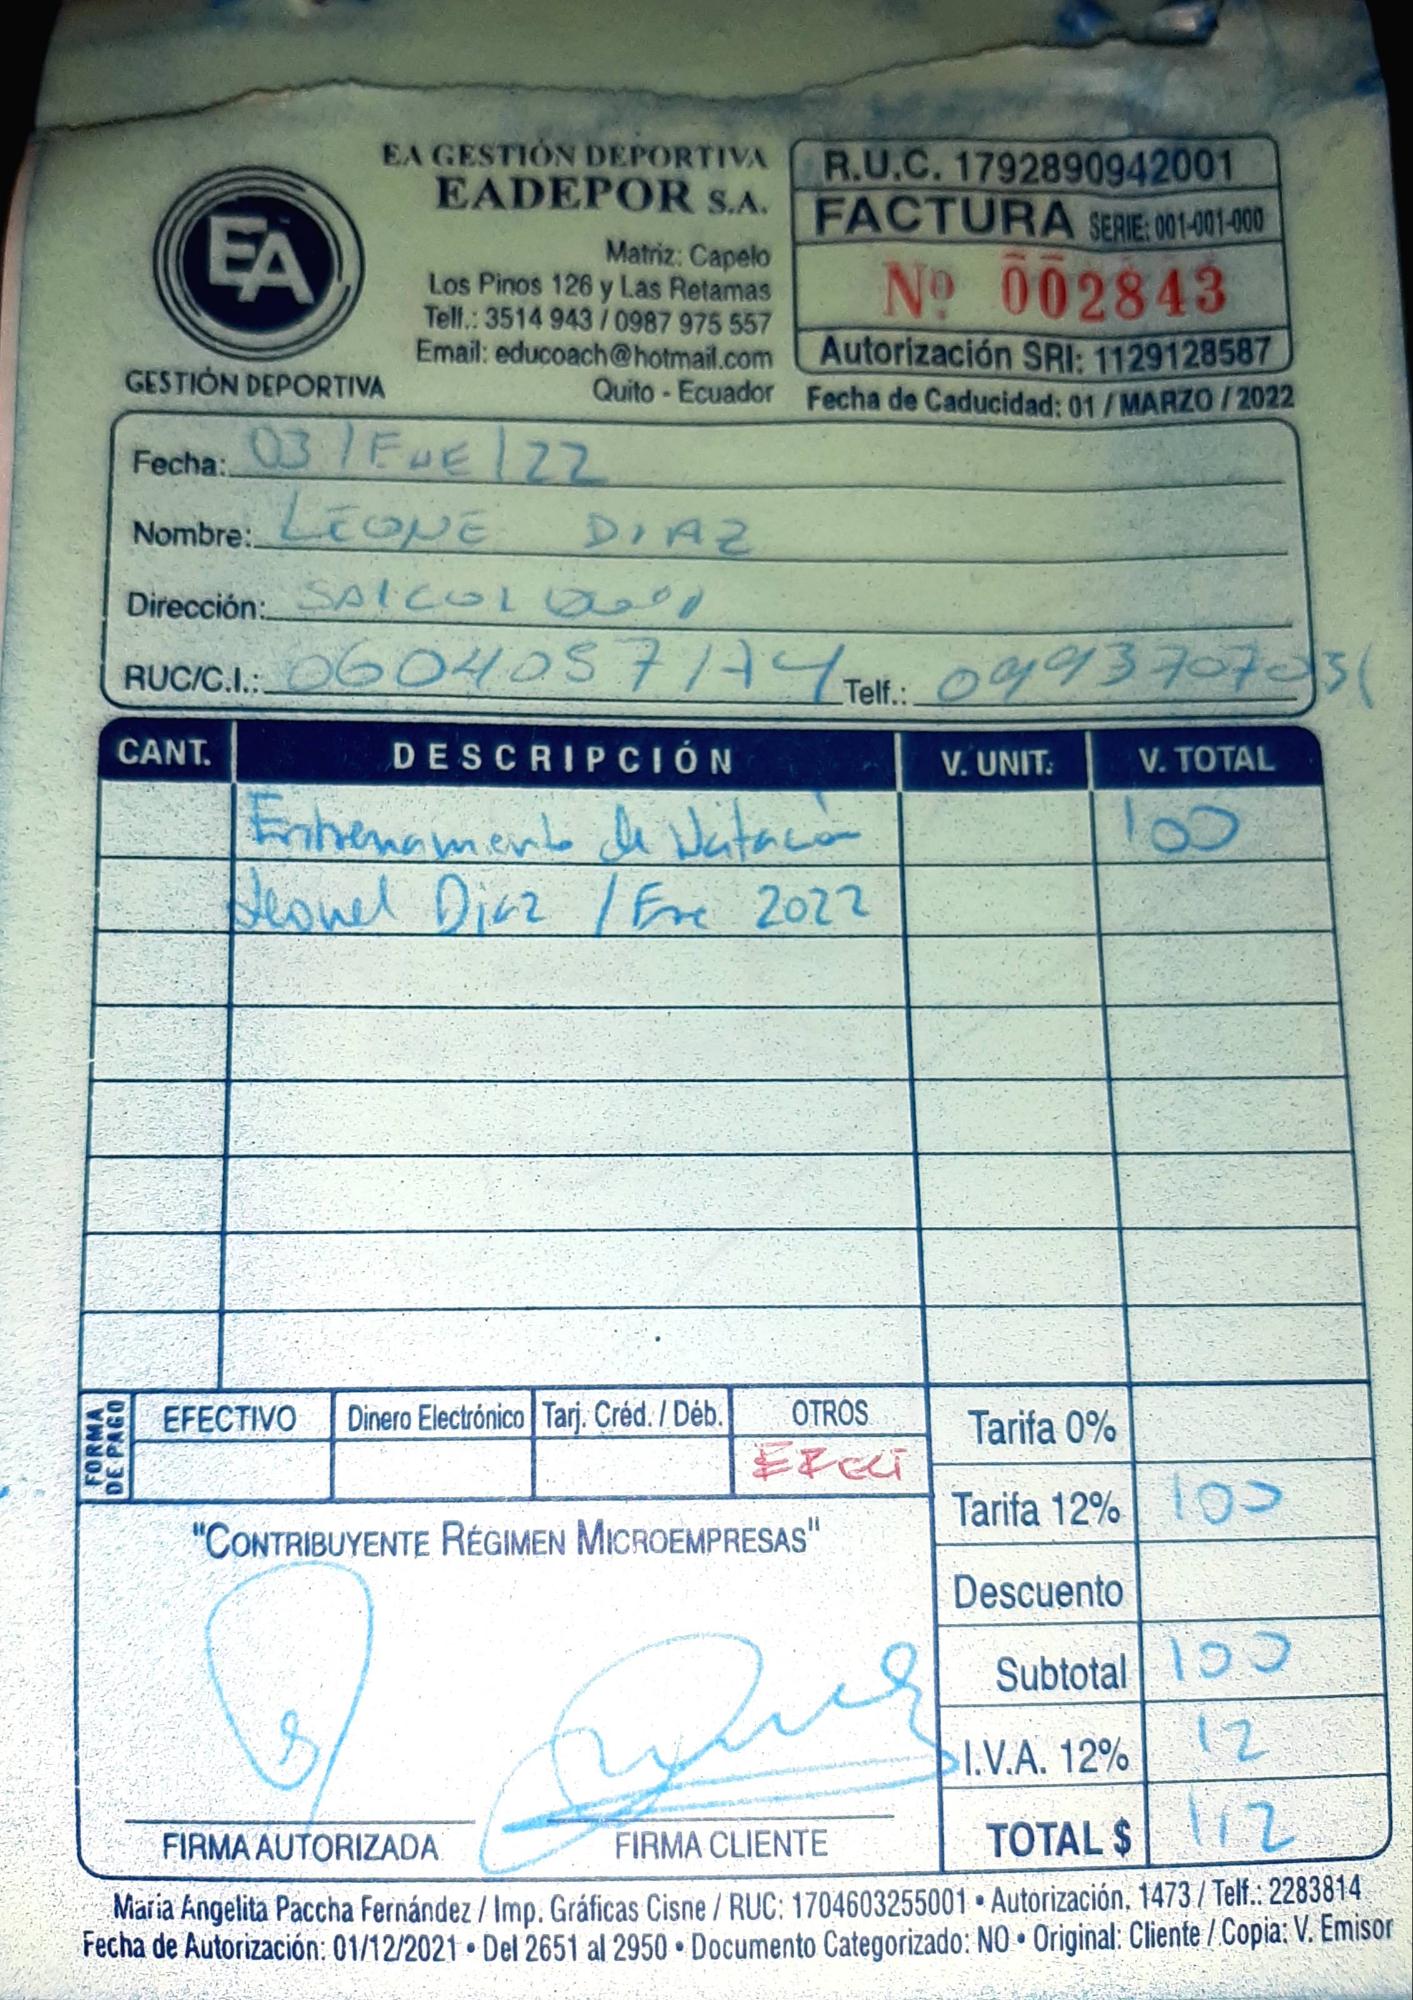 EA GESTIÓN DEPORTIVA
EADEPOR S.A.
Matriz: Capelo
Los Pinos 126 y Las Retamas
Telf.: 3514 943 / 0987 975 557
Email: educoach@hotmail.com
Quito - Ecuador
EA
GESTIÓN DEPORTIVA
R.U.C. 1792890942001
FACTURA SERIE: 001-001-000
Nº 002843
Autorización SRI: 1129128587
Fecha de Caducidad: 01 / MARZO / 2022
Fecha: 03 / ENE / 22
Nombre: LEONE DIAZ
Dirección:
RUC/C.I.: Telf.:
CANT. DESCRIPCIÓN V. UNIT. V. TOTAL
Entrenamiento de Natación 100
Leonel Diaz / Ene 2022
FORMA DE PAGO
EFECTIVO Dinero Electrónico Tarj. Créd. / Déb. OTROS
Tarifa 0%
Tarifa 12% 100
Descuento
Subtotal 100
I.V.A. 12% 12
TOTAL $ 112
"CONTRIBUYENTE RÉGIMEN MICROEMPRESAS"
FIRMA AUTORIZADA FIRMA CLIENTE
María Angelita Paccha Fernández / Imp. Gráficas Cisne / RUC: 1704603255001 • Autorización. 1473 / Telf.: 2283814
Fecha de Autorización: 01/12/2021 • Del 2651 al 2950 • Documento Categorizado: NO • Original: Cliente / Copia: V. Emisor